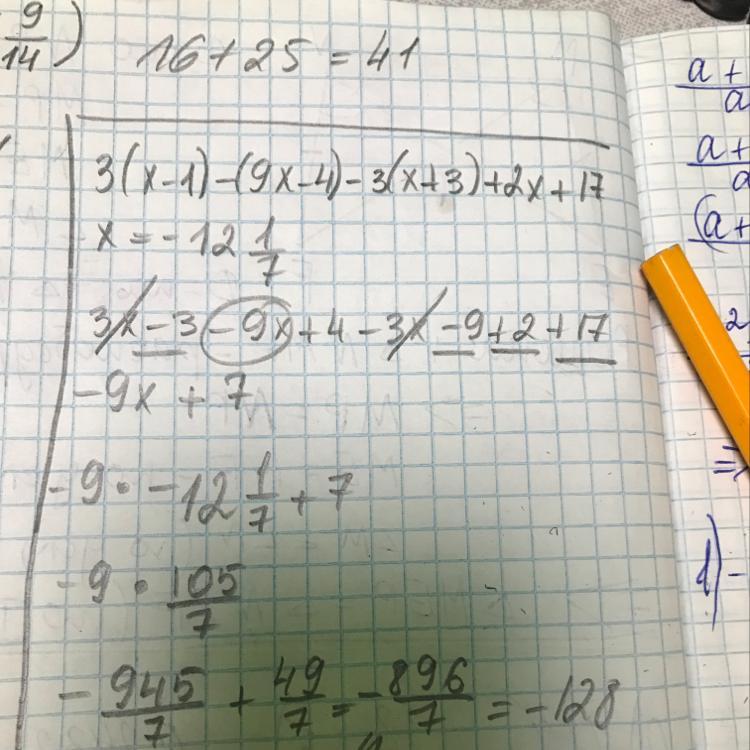 9/14) 16 + 25 = 41
3(x-1)-(9x-4)-3(x+3)+2x+17
x = -12 1/7
3x - 3 - 9x + 4 - 3x - 9 + 2 + 17
-9x + 7
-9 · -12 1/7 + 7
-9 · 105/7
- 945/7 + 49/7 = - 896/7 = -128
a +
a
a +
a
(a+
2
=>
d) -